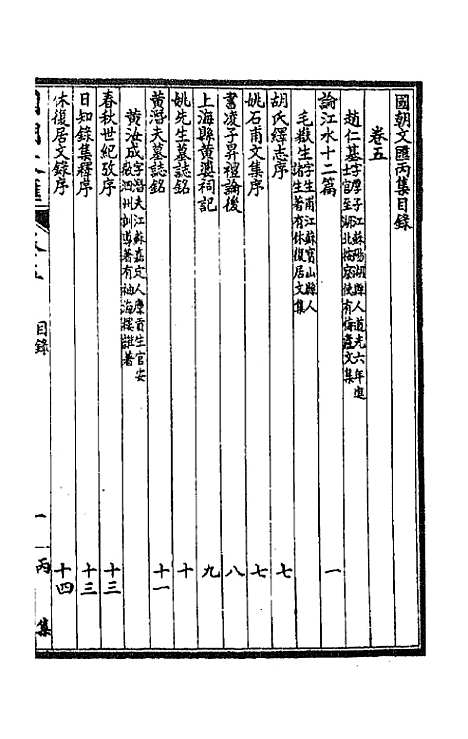 國朝文匯丙集目錄
卷五
趙仁基 字厚子江蘇陽湖縣人道光六年進士官至湖北按察使有 文集
論江水十二篇 一
毛嶽生 字生甫江蘇寶山縣人諸生著有休復居文集
胡氏繹志序 七
姚石甫文集序 七
書凌子昇禮論後 八
上海縣黃婆祠記 九
姚先生墓誌銘 十
黃潛夫墓誌銘 十一
黃汝成 字潛夫江蘇嘉定人廩貢生官安徽泗州訓導著有袖海樓雜著
春秋世紀攷序 十三
日知錄集釋序 十三
休復居文錄序 十四
國朝文匯 卷五 目錄 一 丙集